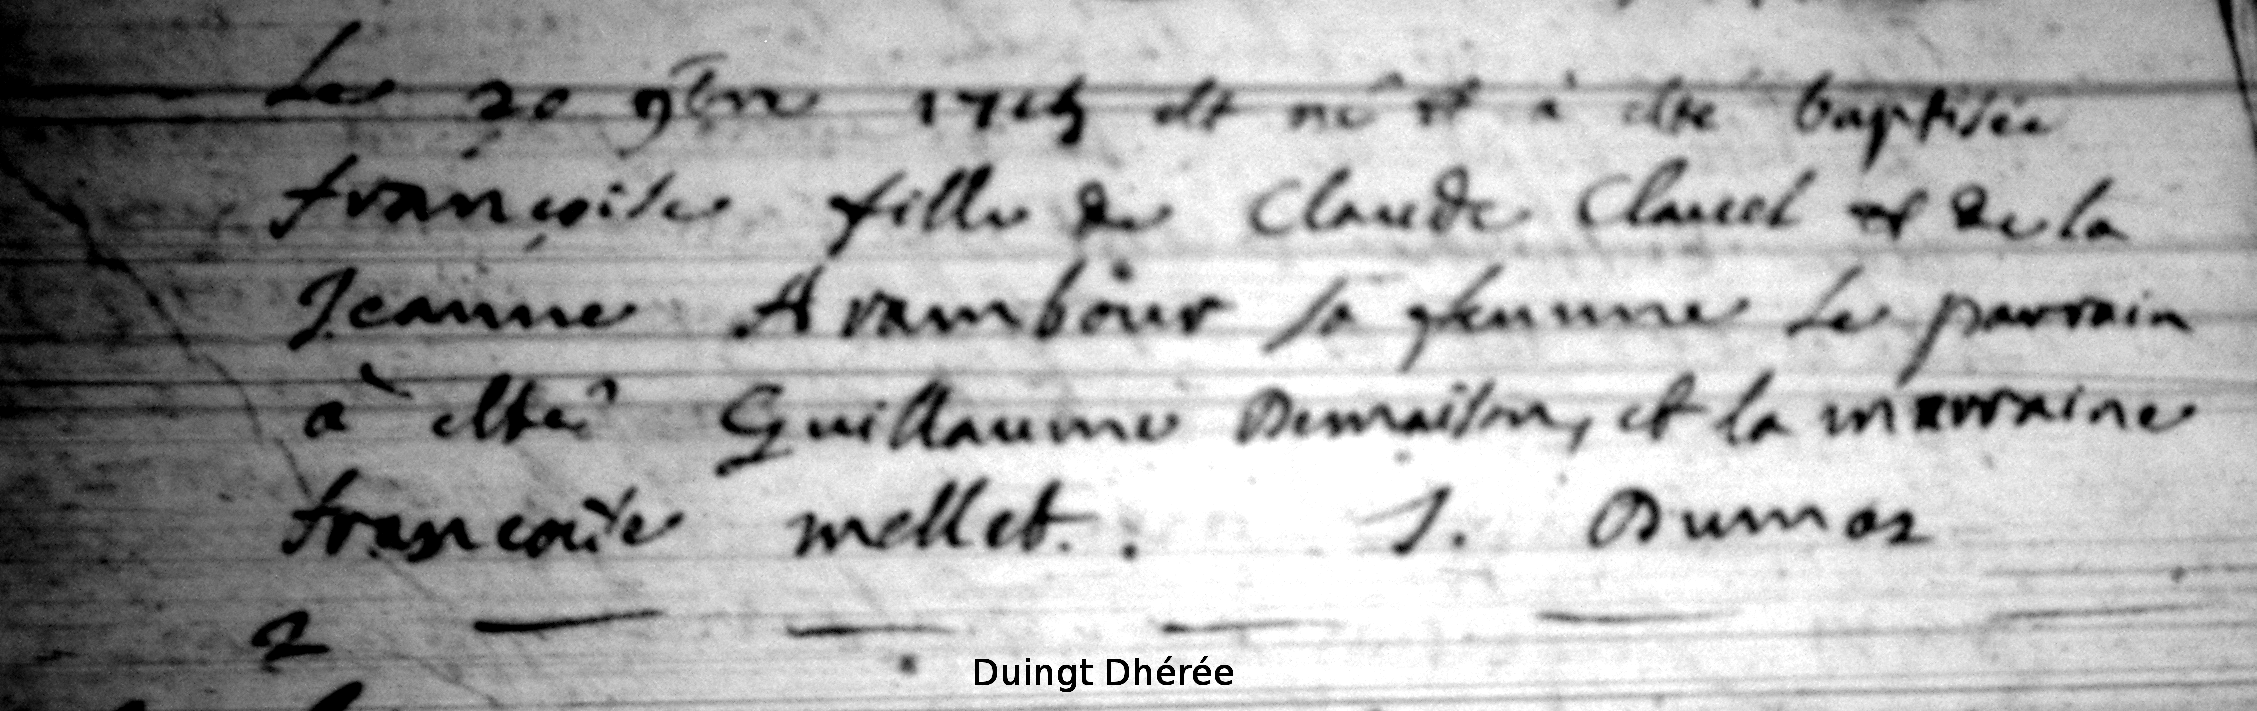 Le 20 9bre 1715 est né et à esté baptisée
françoise fille de Claude Clavel et de la
Jeanne Arambour sa femme Le parrain
à esté Guillaume Demaison, et la marraine
francoise mellet. J. Dumas
2
Duingt Dhérée